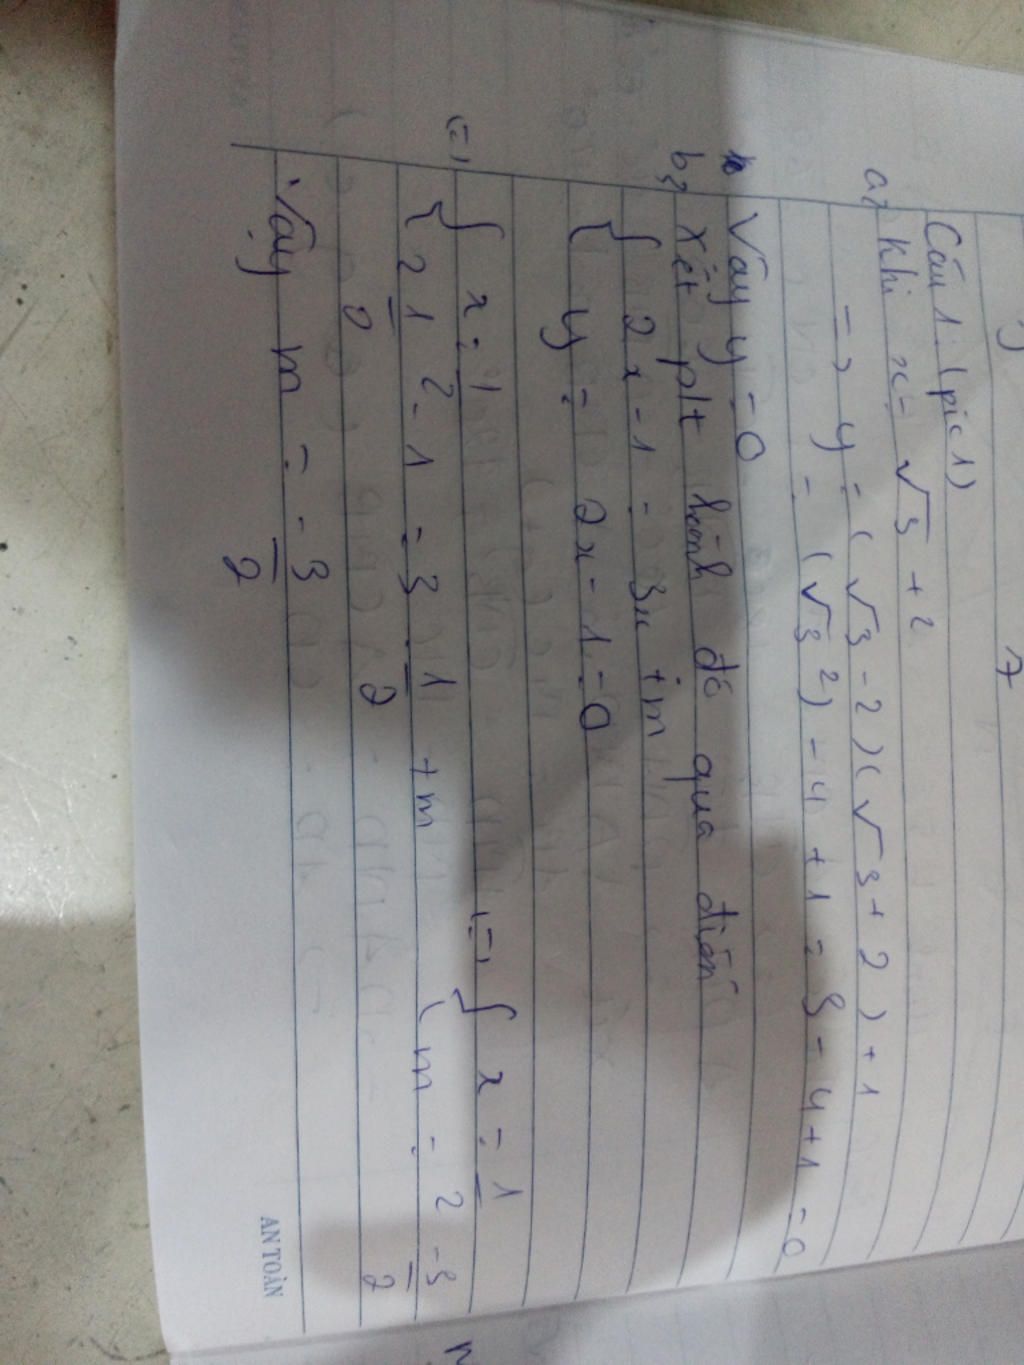 Câu 1. (pic 1)
a, Khi x = √3 + 2
=> y = (√3 - 2)(√3 + 2) + 1
= (√3 ²) - 4 + 1 = 3 - 4 + 1 = 0
Vây y = 0
b, Xét plt hoành đô qua điên
{ 2x - 1 - 3x + m
y = 2x - 1 = 0
(=) { x = 1 (=) { x = 1
{ 2 1/2 2 - 1 = 3 . 1/2 + m { m = -3/2
2
Vây m = -3/2
AN TOÀN